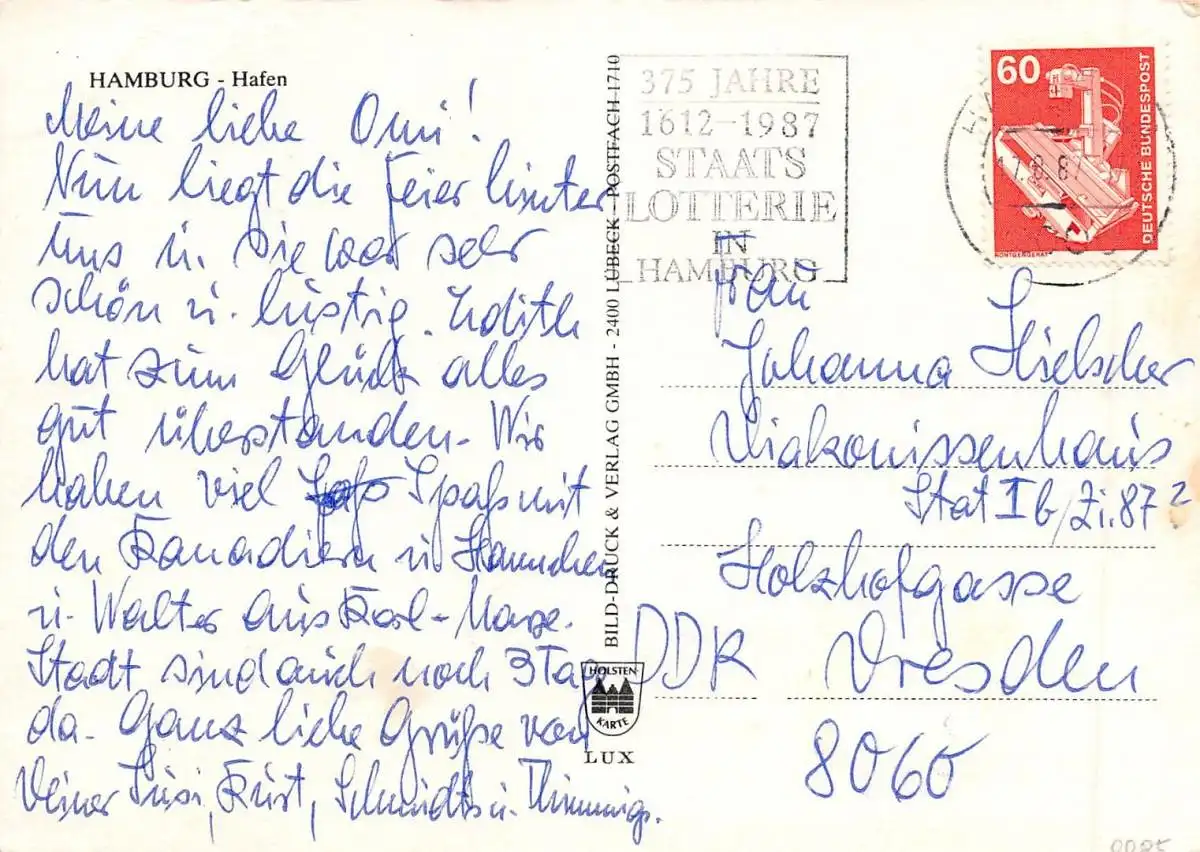 HAMBURG - Hafen
Meine liebe Omi!
Nun liegt die Feier hinter
uns u. sie war sehr
schön u. lustig. Edith
hat zum Glück alles
gut überstanden. Wir
haben viel Spaß mit
den Kanadiern u. Hannchen
u. Walter aus Karl-Marx-
Stadt sind auch noch 3 Tag
da. Ganz liebe Grüße von
Deiner Susi, Kurt, Schmidts u. Thimmigs.
BILD-DRUCK & VERLAG GMBH - 2400 LÜBECK - POSTFACH 1710
HOLSTEN-
KARTE
LUX
375 JAHRE
1612-1987
STAATS
LOTTERIE
IN
HAMBURG
60
DEUTSCHE BUNDESPOST
RÖNTGENGERÄT
8.87
Frau
Johanna Hielscher
Diakonissenhaus
Stat I b/Zi. 87 2
Holzhofgasse
DDR Dresden
8060